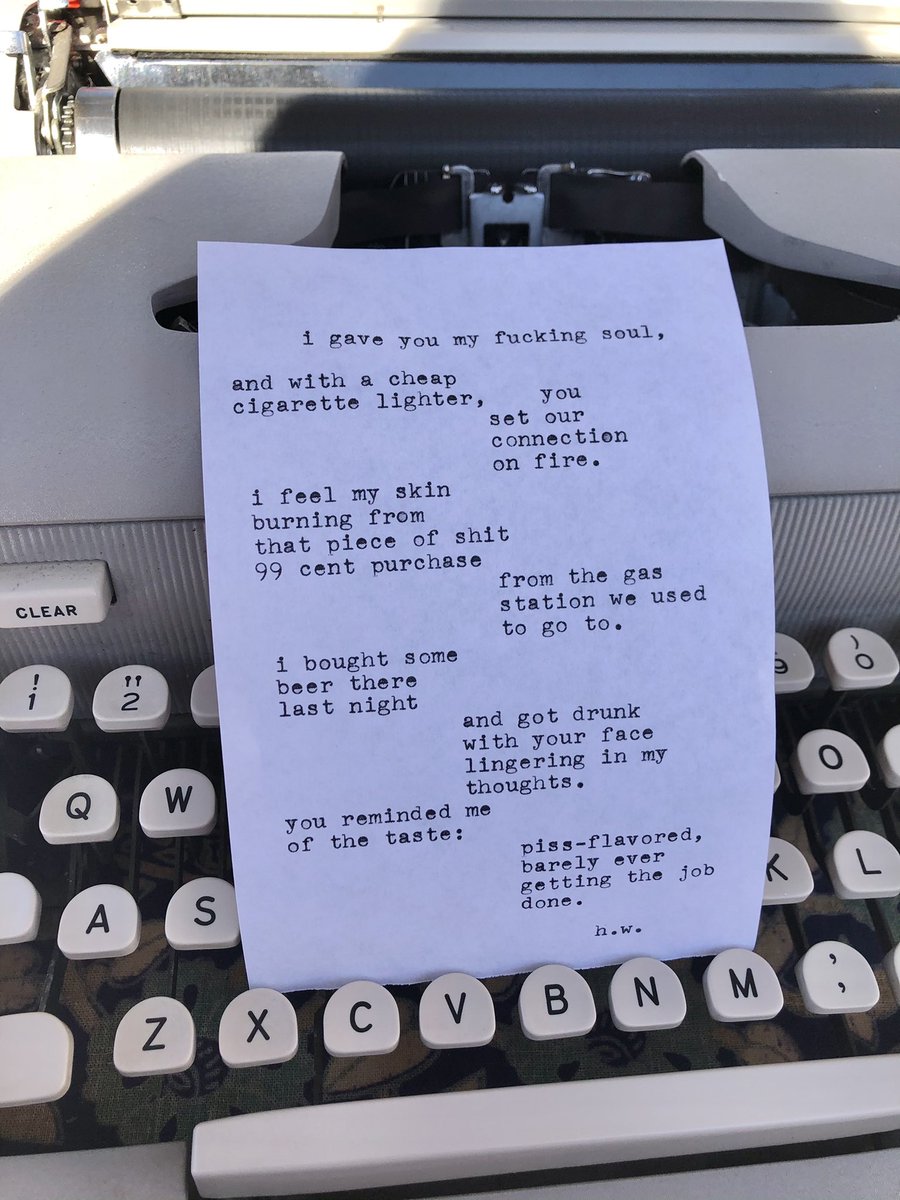 i gave you my fucking soul,
and with a cheap
cigarette lighter,
you
set our
connection
on fire.
i feel my skin
burning from
that piece of shit
99 cent purchase
from the gas
station we used
to go to.
i bought some
beer there
last night
and got drunk
with your face
lingering in my
thoughts.
you reminded me
of the taste:
piss-flavored,
barely ever
getting the job
done.
h.w.
CLEAR
! "
1 2
9 )
0
Q W O
A S K L
Z X C V B N M ; ,